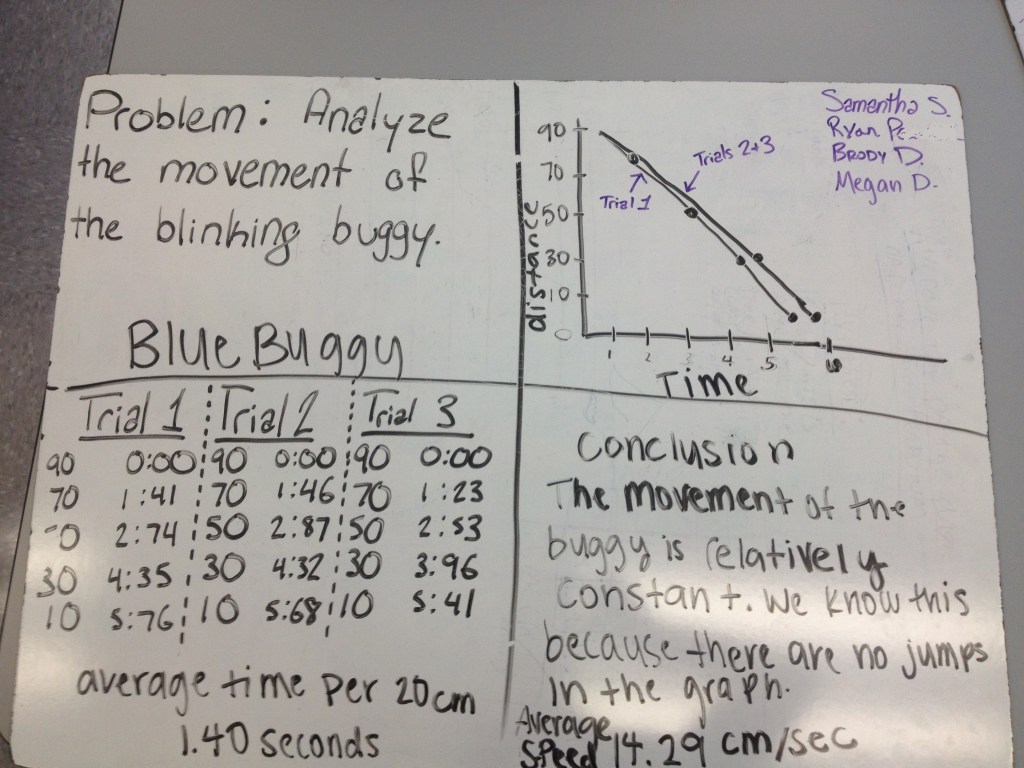 Problem: Analyze
the movement of
the blinking buggy.
Samantha S.
Ryan P
Brody D.
Megan D.
distance
90
70
50
30
10
0
Trials 2+3
Trial 1
1 2 3 4 5 6
Time
Blue Buggy
Trial 1 Trial 2 Trial 3
90 0:00 90 0:00 90 0:00
70 1:41 70 1:46 70 1:23
0 2:74 50 2:87 50 2:53
30 4:35 30 4:32 30 3:96
10 5:76 10 5:68 10 5:41
average time per 20cm
1.40 seconds
Conclusion
The movement of the
buggy is relatively
constant. We know this
because there are no jumps
in the graph.
Average
Speed 14.29 cm/sec